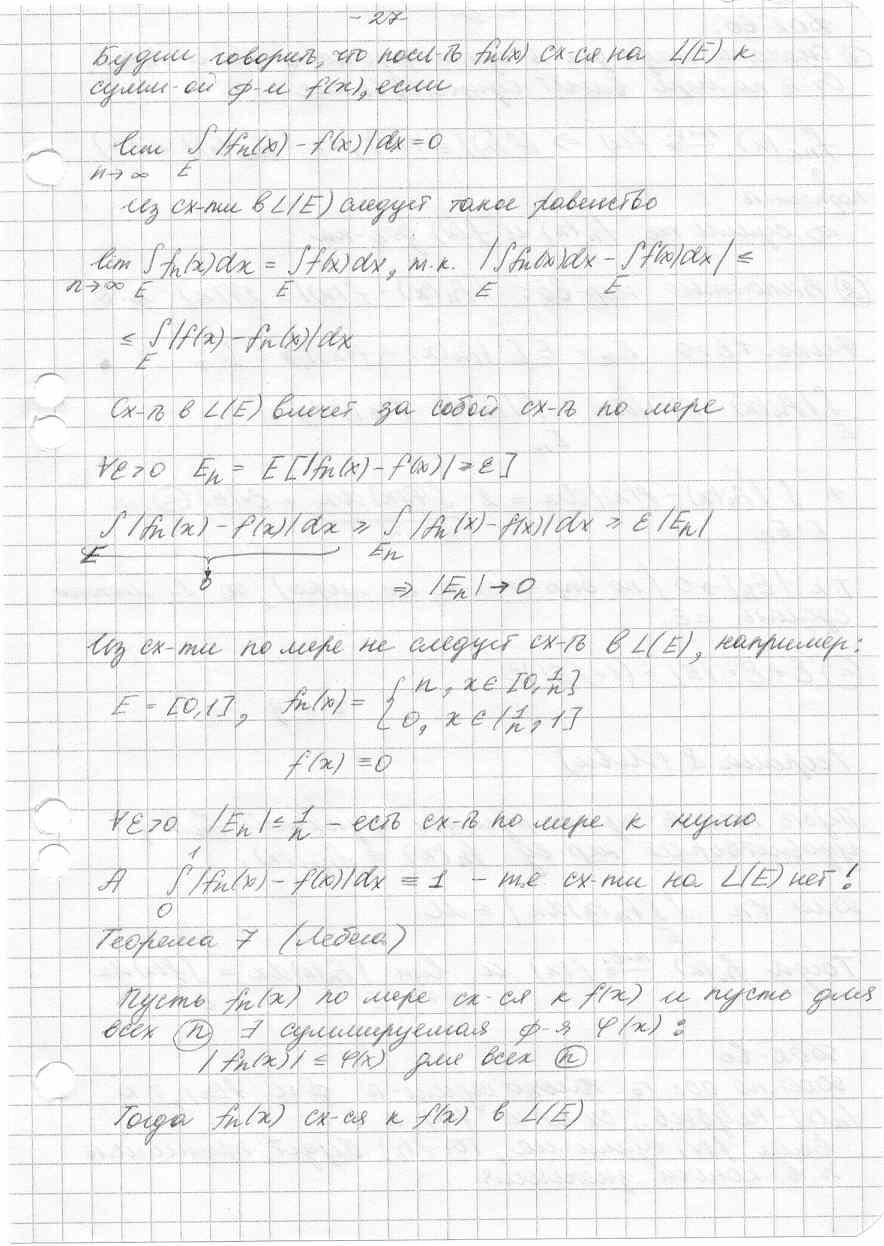 - 27
Будем говорить, что посл-ть fn(x) сх-ся на L(E) к
сумм-ой ф-и f(x), если
lim ∫ |fn(x) - f(x)|dx = 0
n→∞ E
Из сх-ти в L(E) следует такое равенство
lim ∫ fn(x)dx = ∫ f(x)dx, т.к. |∫ fn(x)dx - ∫ f(x)dx| ≤
n→∞ E E E E
≤ ∫ |f(x) - fn(x)|dx
E
Сх-ть в L(E) влечет за собой сх-ть по мере
∀ε>0 En = E[|fn(x) - f(x)| ≥ ε]
∫ |fn(x) - f(x)|dx ≥ ∫ |fn(x) - f(x)|dx ≥ ε|En|
E En
0 ⇒ |En| → 0
Из сх-ти по мере не следует сх-ть в L(E), например:
E = [0,1], fn(x) = { n, x ∈ [0, 1/n]
0, x ∈ (1/n, 1]
f(x) ≡ 0
∀ε>0 |En| ≤ 1/n - есть сх-ть по мере к нулю
А ∫₀¹ |fn(x) - f(x)|dx = 1 - т.е сх-ти на L(E) нет!
Теорема 7 (Лебега)
Пусть fn(x) по мере сх-ся к f(x) и пусть для
всех n ∃ суммируемая ф-я φ(x):
|fn(x)| ≤ φ(x) для всех n
Тогда fn(x) сх-ся к f(x) в L(E)